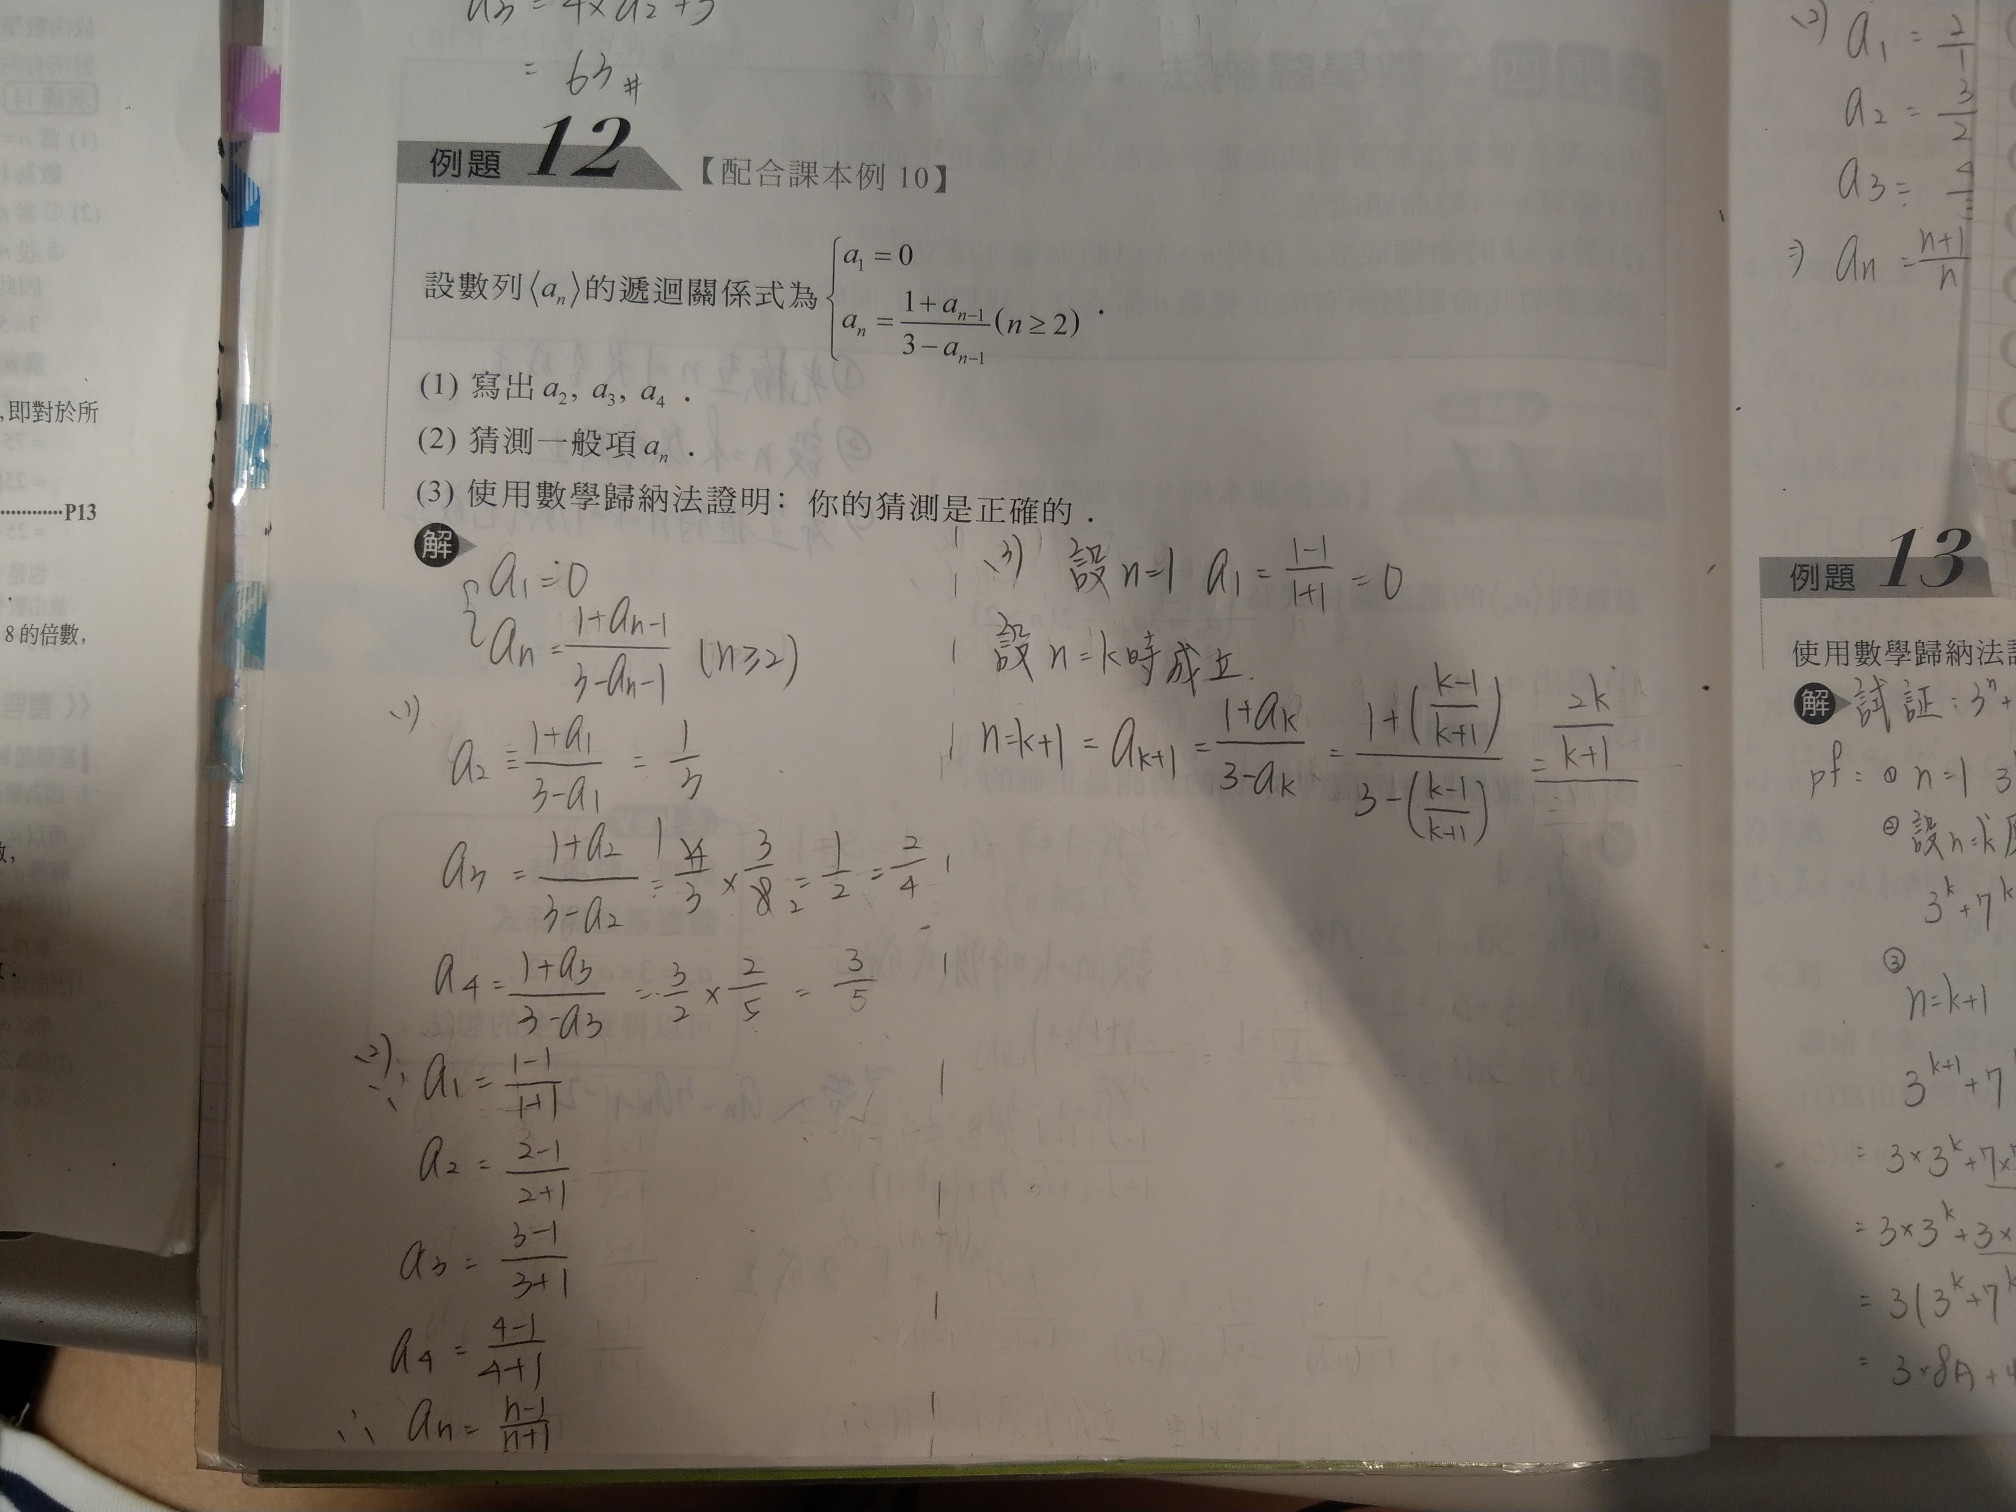 a3 = 4×a2+3
= 63 #
例題 12 【配合課本例 10】
設數列⟨aₙ⟩的遞迴關係式為 { a₁ = 0
aₙ = (1+aₙ₋₁)/(3−aₙ₋₁) (n ≥ 2) .
(1) 寫出 a₂, a₃, a₄ .
(2) 猜測一般項 aₙ .
(3) 使用數學歸納法證明：你的猜測是正確的 .
解
{ a1 = 0
an = (1+an-1)/(3-an-1) (n≥2)
(1)
a2 = (1+a1)/(3-a1) = 1/3
a3 = (1+a2)/(3-a2) = 4/3 × 3/8 = 1/2 = 2/4
a4 = (1+a3)/(3-a3) = 3/2 × 2/5 = 3/5
(2)
∵ a1 = (1-1)/(1+1)
a2 = (2-1)/(2+1)
a3 = (3-1)/(3+1)
a4 = (4-1)/(4+1)
∴ an = (n-1)/(n+1)
(3) 設 n=1 a1 = (1-1)/(1+1) = 0
設 n=k時成立.
n=k+1 = ak+1 = (1+ak)/(3-ak) = (1+((k-1)/(k+1)))/(3-((k-1)/(k+1))) = 2k/(k+1)
(2) a1 = 2/1
a2 = 3/2
a3 = 4/3
⇒ an = (n+1)/n
例題 13
使用數學歸納法
解 試証：3ⁿ+
pf = ① n=1 3
② 設n=k
3ᵏ+7ᵏ
③
n=k+1
3ᵏ⁺¹+7
= 3×3ᵏ+7×
= 3×3ᵏ+3×
= 3(3ᵏ+7ᵏ
= 3×8A+4
，即對於所
P13
8 的倍數，